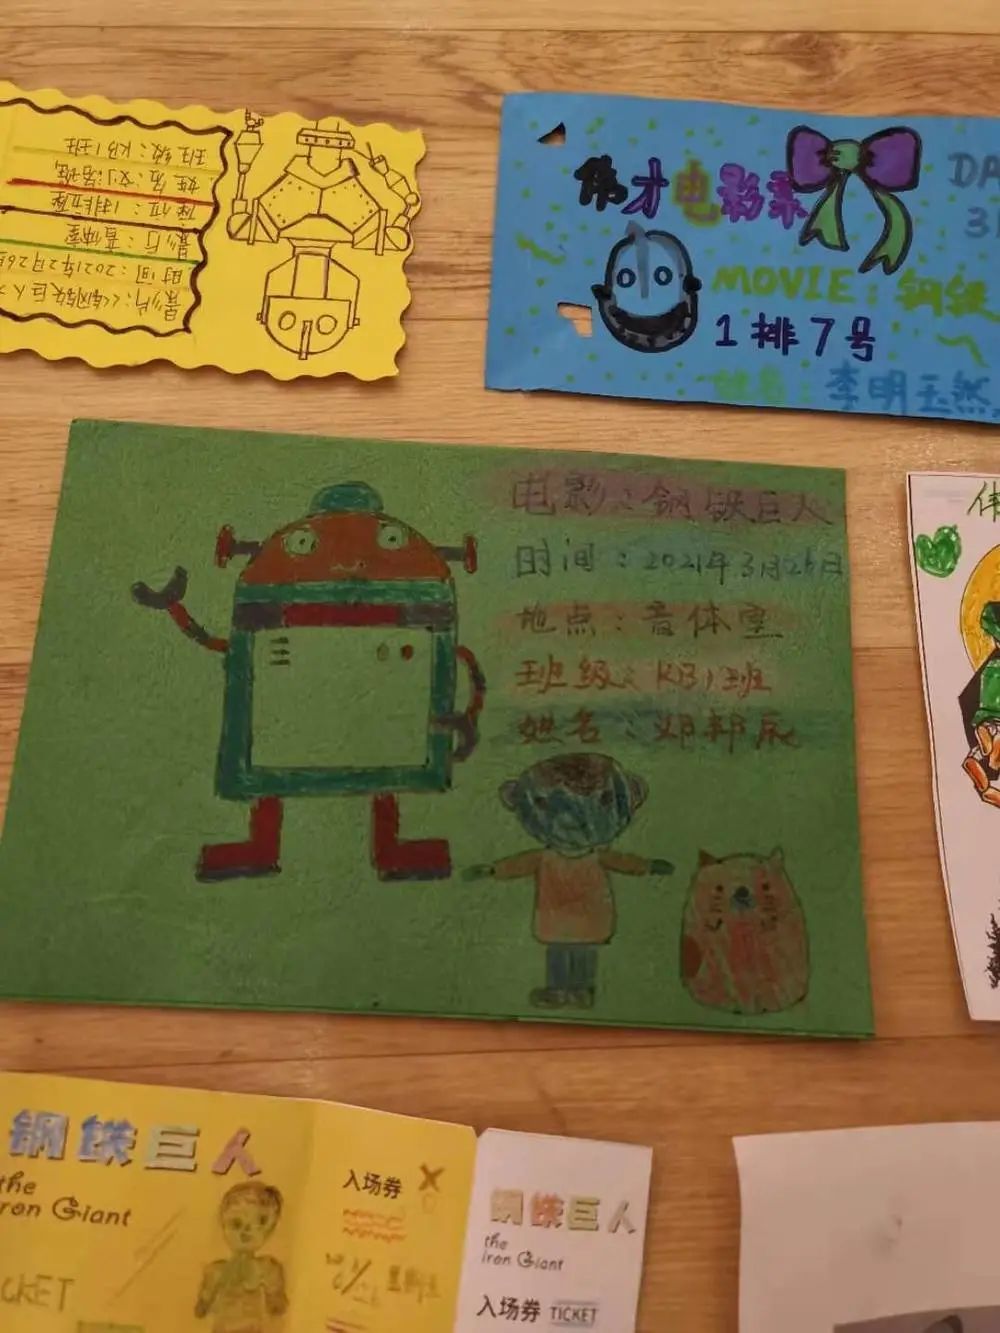 班级：KB1班
座位：1排1座
地点：音体室
时间：2021年2月26
伟才电影票
DA
3
MOVIE：钢铁
1排7号
姓名：李明玉然
电影：钢铁巨人
时间：2021年3月26日
地点：音体室
班级：KB1班
姓名：邓邦辰
伟
钢铁巨人
the
Iron Giant
CKET
入场券
钢铁巨人
the
Iron Giant
入场券 TICKET